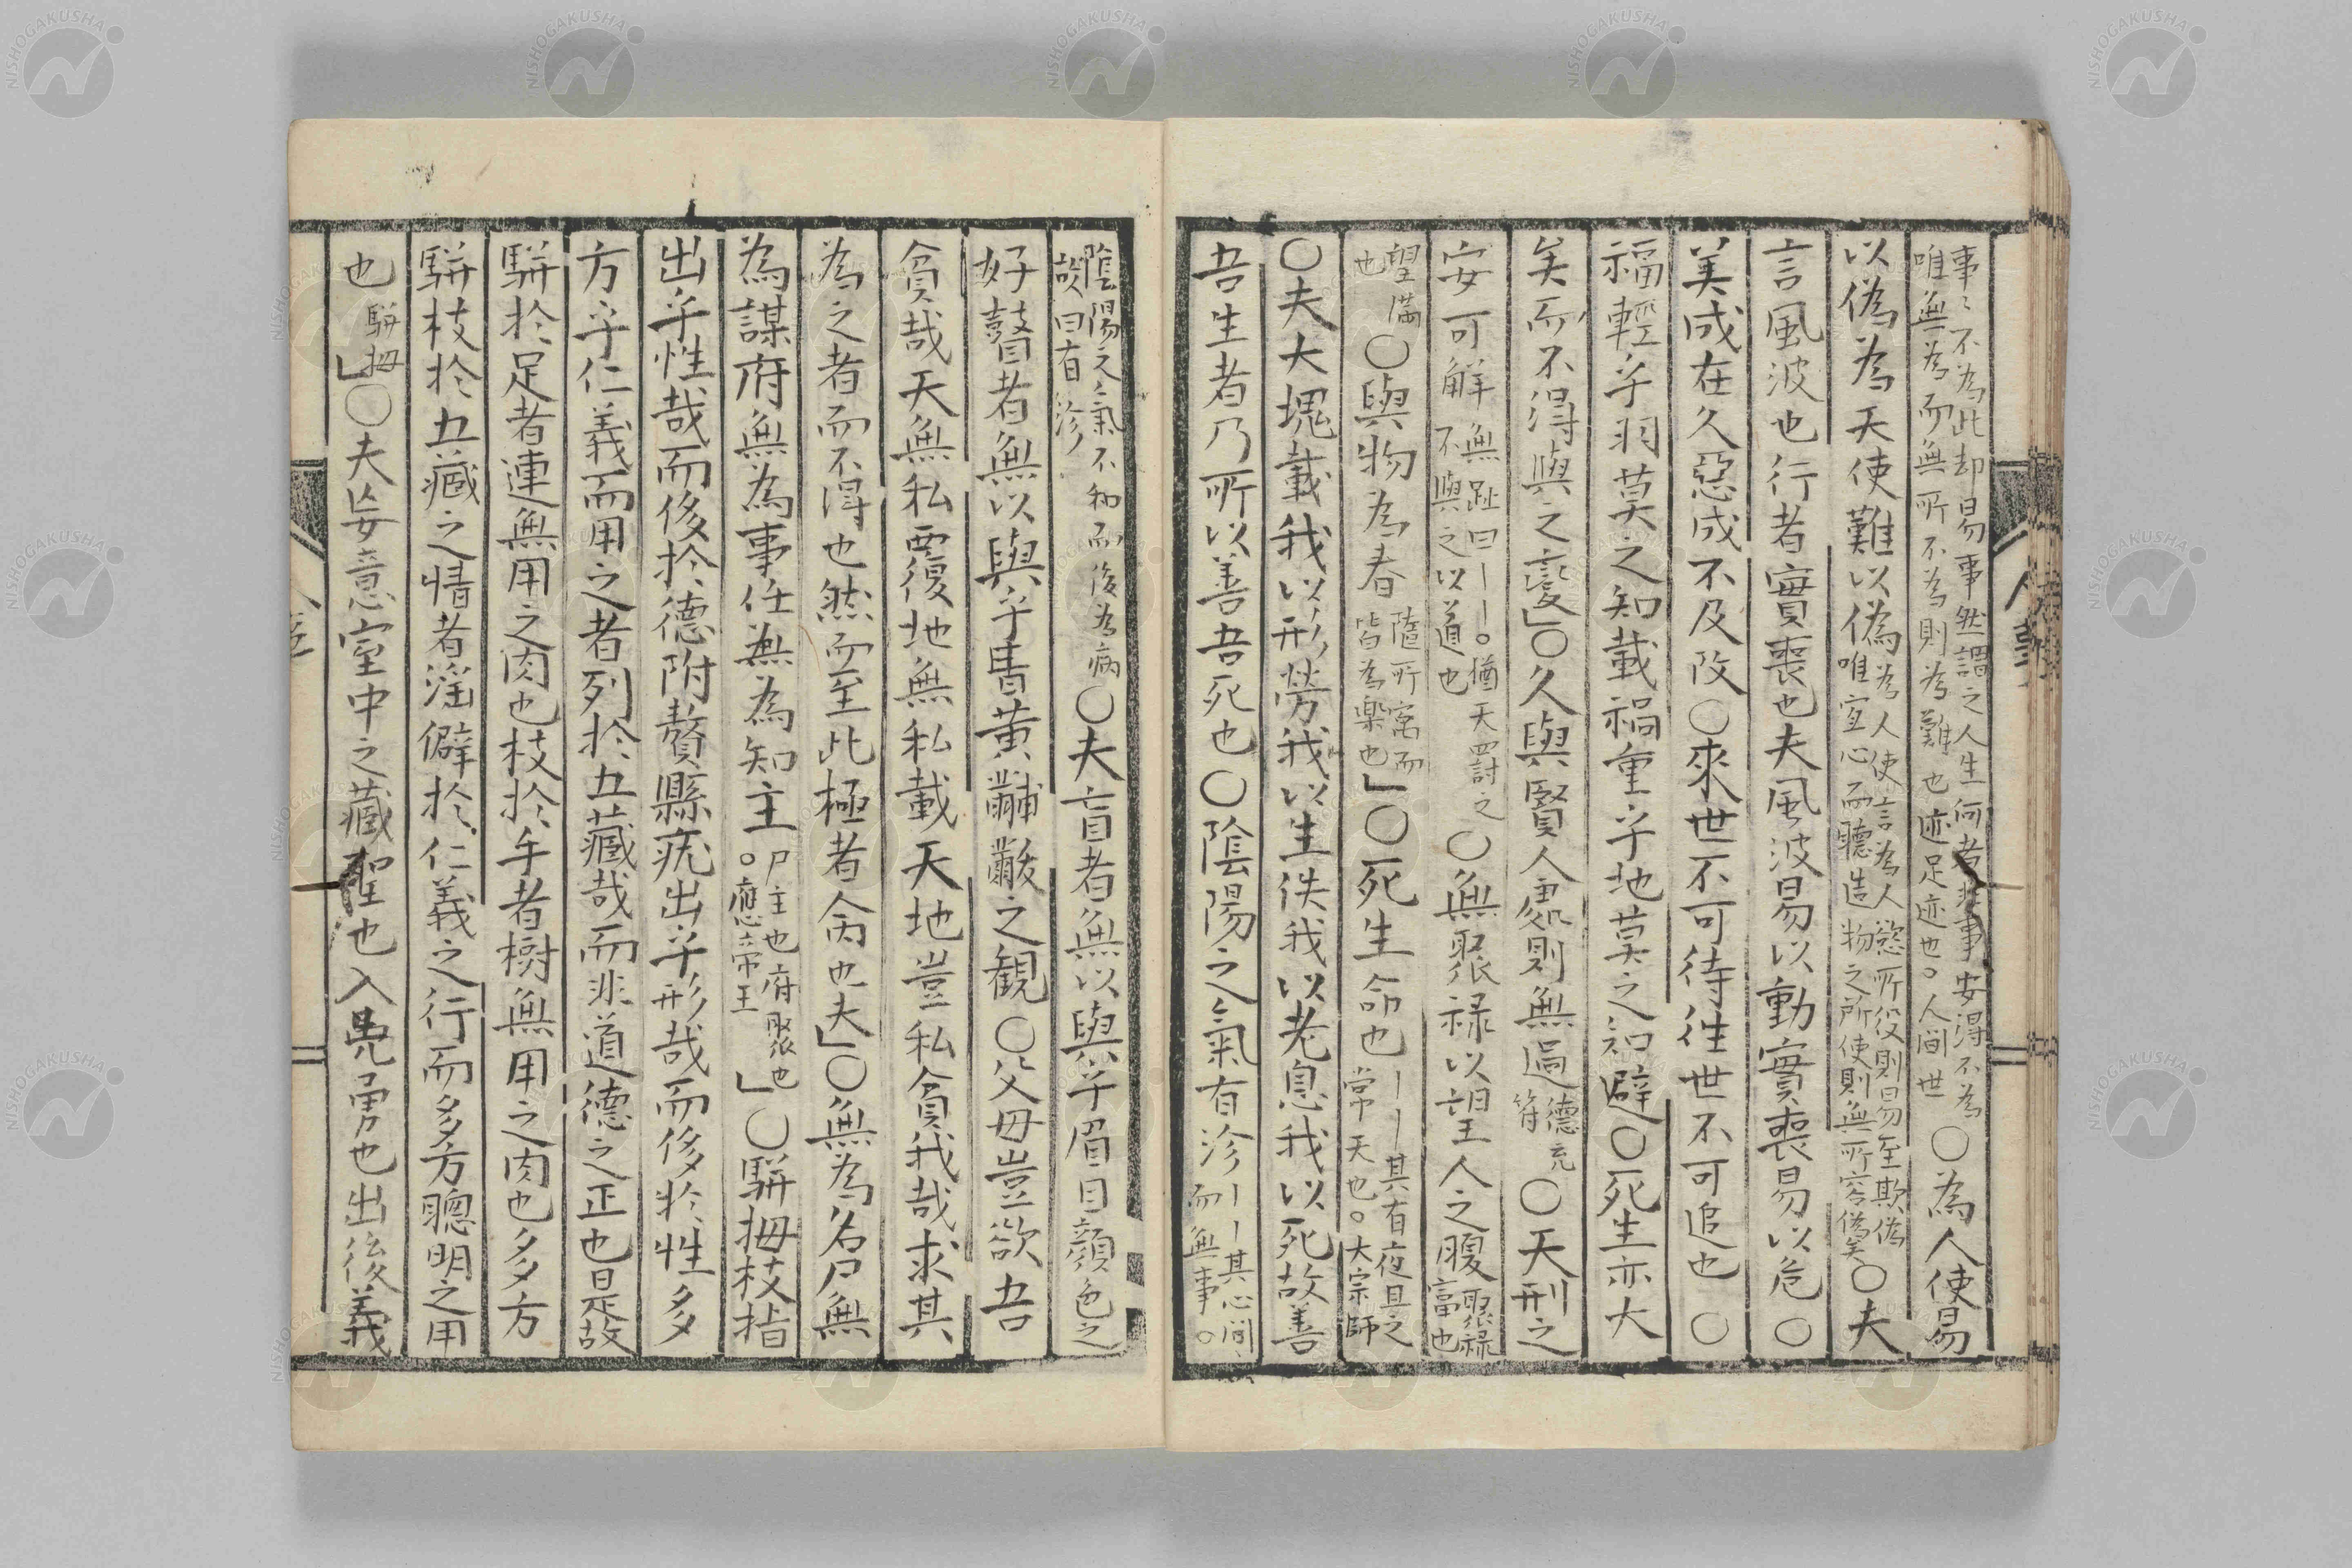 事〻不為此却易事然謂之人生何者非事安得不為
唯無為而無所不為則為難也迹足迹也。人間世
○為人使易
以偽為天使難以偽
為人使言為人慾所役則易至欺偽
唯宜心而聽造物之所使則無所容偽矣
○夫
言風波也行者實喪也夫風波易以動實喪易以危○
美成在久惡成不及改○來世不可待徃世不可追也○
福輕乎羽莫之知載禍重乎地莫之知避○死生亦大
矣而不得與之變」○久與賢人處則無過
德充
符
○天刑之
安可解
無趾曰〡〡。猶天罸之
不與之以道也
○無聚禄以望人之腹
聚禄
富也
望滿
也
○與物為春
隨所寓而
皆為楽也
」○死生命也
〡〡其有夜旦之
常天也。大宗師
○夫大塊載我以形勞我以生佚我以老息我以死故善
吾生者乃所以善吾死也○陰陽之氣有沴
〡〡其心間
而無事。
陰陽之氣不和而後為病
故曰有沴
○夫盲者無以與乎眉目顔色之
好瞽者無以與乎青黄黼黻之観○父母豈欲吾
貧哉天無私覆地無私載天地豈私貧我哉求其
為之者而不得也然而至此極者命也夫」○無為名尸無
為謀府無為事任無為知主
尸主也府聚也
。應帝王
」○駢拇枝指
出乎性哉而侈於德附贅縣疣出乎形哉而侈於性多
方乎仁義而用之者列於五藏哉而非道德之正也是故
駢於足者連無用之肉也枝於手者樹無用之肉也多方
駢枝於五藏之情者淫僻於仁義之行而多方聰明之用
也
駢拇
」○夫妄意室中之藏聖也入先勇也出後義